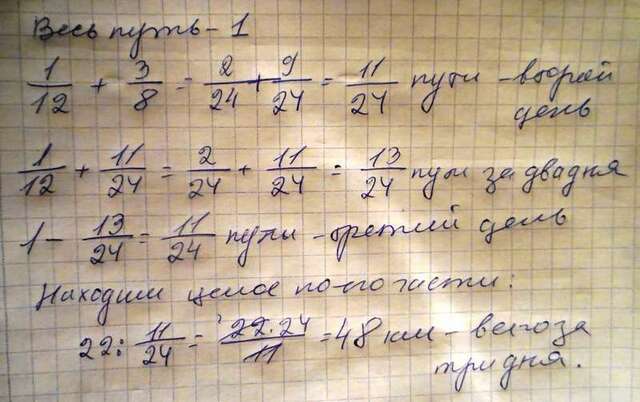 Весь путь - 1
1/12 + 3/8 = 2/24 + 9/24 = 11/24 пути - второй
день
1/12 + 11/24 = 2/24 + 11/24 = 13/24 пути за два дня
1 - 13/24 = 11/24 пути - третий день
Находим целое по его части:
22 : 11/24 = 22·24/11 = 48 км - всего за
три дня.